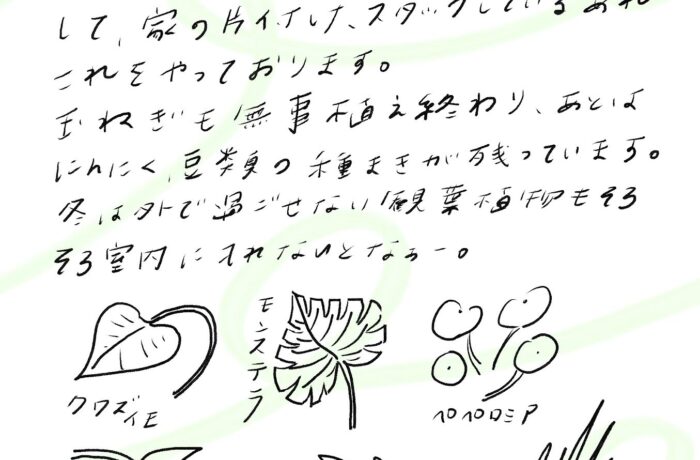 して、家の片付け、スタックしているあれ
これをやっております。
玉ねぎも無事植え終わり、あとは
にんにく、豆類の種まきが残っています。
冬は外で過ごせない観葉植物もそろ
そろ室内に入れないとなぁー。
クワズイモ
モンステラ
ペペロミア